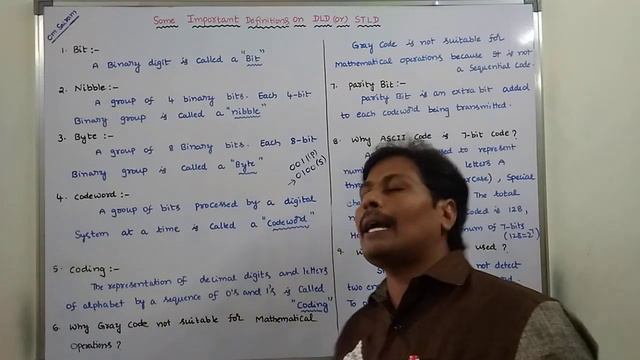 Om Sairam
Some Important Definitions on DLD (or) STLD
1. Bit :-
A Binary digit is called a "Bit"
2. Nibble :-
A group of 4 binary bits. Each 4-bit
Binary group is called a "nibble"
3. Byte :-
A group of 8 Binary bits. Each 8-bit
Binary group is called a "Byte"
0011(P)
→ 0100(S)
4. Codeword :-
A group of bits processed by a digital
System at a time is called a "Codeword"
5. Coding :-
The representation of decimal digits and letters
of alphabet by a sequence of 0's and 1's is called
"Coding"
6. Why Gray Code not suitable for Mathematical
Operations ?
Gray Code is not suitable for
Mathematical operations because It is not
a Sequential Code.
7. parity Bit :-
parity Bit is an extra bit added
to each codeword being transmitted.
8. Why ASCII Code is 7-bit Code ?
used to represent
letters A
Case), Special
The total
coded is 128,
of 7-bits
9. used ?
not detect
two